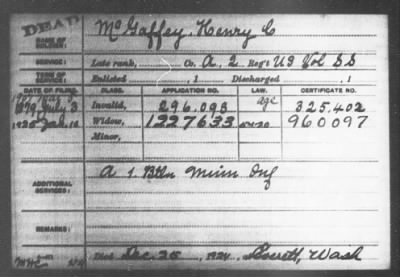 DEAD
NAME OF SOLDIER: McGaffey, Henry C
SERVICE: Late rank, Co. A, 2 Reg't US Vol S.S
TERM OF SERVICE: Enlisted , 1 Discharged , 1
DATE OF FILING. CLASS. APPLICATION NO. LAW. CERTIFICATE NO.
1879 July 3 Invalid, 296.098 age 325.402
1925 Jan. 16 Widow, 1227633 960097
Minor,
ADDITIONAL SERVICES: A 1 Btln Minn Inf
REMARKS:
Died Dec. 25, 1924, Everett, Wash